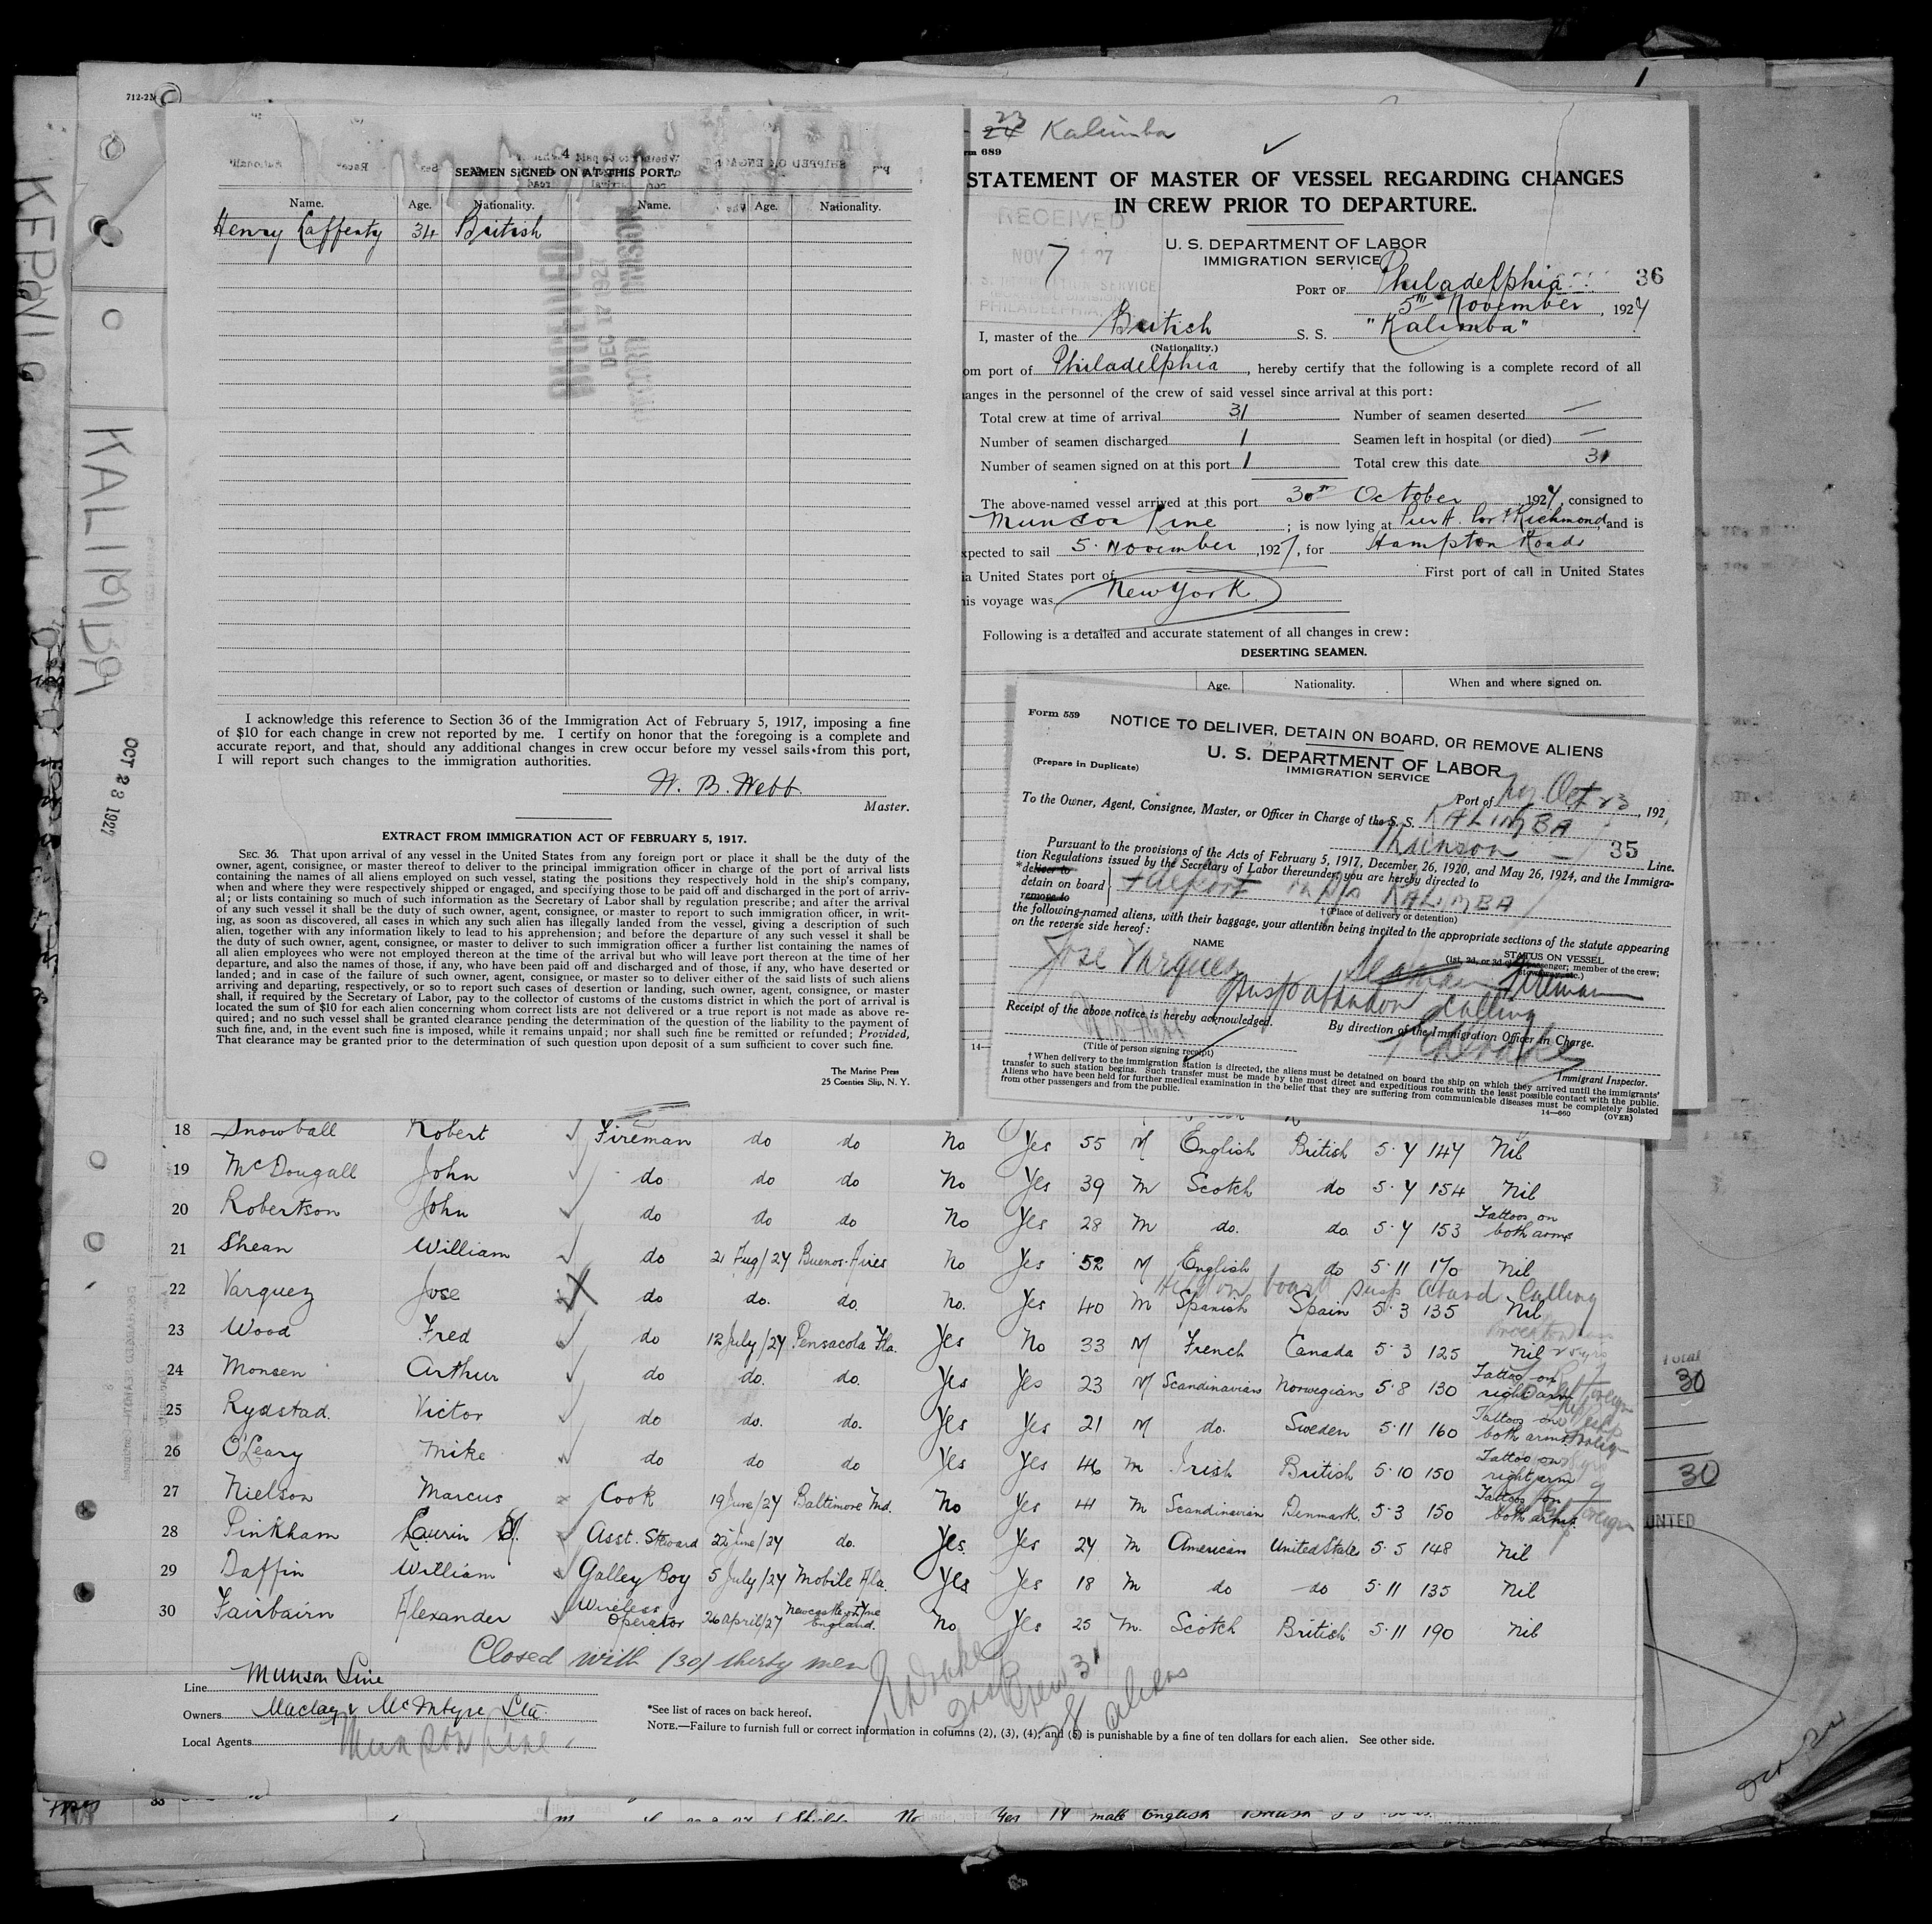 712-2M
KALIMBA
OCT 23 1927
4
SEAMEN SIGNED ON AT THIS PORT.
Name. Age. Nationality. Name. Age. Nationality.
Henry Lafferty 34 British
DEC 17 1927
DIVISION
I acknowledge this reference to Section 36 of the Immigration Act of February 5, 1917, imposing a fine
of $10 for each change in crew not reported by me. I certify on honor that the foregoing is a complete and
accurate report, and that, should any additional changes in crew occur before my vessel sails from this port,
I will report such changes to the immigration authorities.
W. B. Webb
Master.
EXTRACT FROM IMMIGRATION ACT OF FEBRUARY 5, 1917.
SEC. 36. That upon arrival of any vessel in the United States from any foreign port or place it shall be the duty of the
owner, agent, consignee, or master thereof to deliver to the principal immigration officer in charge of the port of arrival lists
containing the names of all aliens employed on such vessel, stating the positions they respectively hold in the ship's company,
when and where they were respectively shipped or engaged, and specifying those to be paid off and discharged in the port of arriv-
al; or lists containing so much of such information as the Secretary of Labor shall by regulation prescribe; and after the arrival
of any such vessel it shall be the duty of such owner, agent, consignee, or master to report to such immigration officer, in writ-
ing, as soon as discovered, all cases in which any such alien has illegally landed from the vessel, giving a description of such
alien, together with any information likely to lead to his apprehension; and before the departure of any such vessel it shall be
the duty of such owner, agent, consignee, or master to deliver to such immigration officer a further list containing the names of
all alien employees who were not employed thereon at the time of the arrival but who will leave port thereon at the time of her
departure, and also the names of those, if any, who have been paid off and discharged and of those, if any, who have deserted or
landed; and in case of the failure of such owner, agent, consignee, or master so to deliver either of the said lists of such aliens
arriving and departing, respectively, or so to report such cases of desertion or landing, such owner, agent, consignee, or master
shall, if required by the Secretary of Labor, pay to the collector of customs of the customs district in which the port of arrival is
located the sum of $10 for each alien concerning whom correct lists are not delivered or a true report is not made as above re-
quired; and no such vessel shall be granted clearance pending the determination of the question of the liability to the payment of
such fine, and, in the event such fine is imposed, while it remains unpaid; nor shall such fine be remitted or refunded; Provided,
That clearance may be granted prior to the determination of such question upon deposit of a sum sufficient to cover such fine.
The Marine Press
25 Coenties Slip, N. Y.
23 Kalimba
rm 689
STATEMENT OF MASTER OF VESSEL REGARDING CHANGES
IN CREW PRIOR TO DEPARTURE.
RECEIVED
NOV 7 1927
U. S. DEPARTMENT OF LABOR
IMMIGRATION SERVICE
PORT OF Philadelphia 36
5th November, 1927
I, master of the British S. S. "Kalimba"
(Nationality.)
om port of Philadelphia, hereby certify that the following is a complete record of all
anges in the personnel of the crew of said vessel since arrival at this port:
Total crew at time of arrival 31 Number of seamen deserted —
Number of seamen discharged 1 Seamen left in hospital (or died) —
Number of seamen signed on at this port 1 Total crew this date 31
The above-named vessel arrived at this port 30th October, 1927, consigned to
Munson Line; is now lying at Pier A. Port Richmond, and is
xpected to sail 5 November, 1927, for Hampton Roads
ia United States port of First port of call in United States
is voyage was New York
Following is a detailed and accurate statement of all changes in crew:
DESERTING SEAMEN.
Age. Nationality. When and where signed on.
Form 559
NOTICE TO DELIVER, DETAIN ON BOARD, OR REMOVE ALIENS
U. S. DEPARTMENT OF LABOR
IMMIGRATION SERVICE
(Prepare in Duplicate)
Port of N.Y. Oct 23, 192
To the Owner, Agent, Consignee, Master, or Officer in Charge of the S. S. KALIMBA
Munson 35 Line.
Pursuant to the provisions of the Acts of February 5, 1917, December 26, 1920, and May 26, 1924, and the Immigra-
tion Regulations issued by the Secretary of Labor thereunder, you are hereby directed to
*deliver to
detain on board + deport on S/S KALIMBA
remove to
†(Place of delivery or detention)
the following-named aliens, with their baggage, your attention being invited to the appropriate sections of the statute appearing
on the reverse side hereof:
NAME STATUS ON VESSEL
(1st, 2d, or 3d class passenger; member of the crew;
stowaway, etc.)
Jose Varquez Seaman Fireman
Susp abandon calling
Receipt of the above notice is hereby acknowledged.
By direction of the Immigration Officer in Charge.
(Title of person signing receipt)
Immigrant Inspector.
†When delivery to the immigration station is directed, the aliens must be detained on board the ship on which they arrived until the immigrants'
transfer to such station begins. Such transfer must be made by the most direct and expeditious route with the least possible contact with the public.
Aliens who have been held for further medical examination in the belief that they are suffering from communicable diseases must be completely isolated
from other passengers and from the public.
14—660 (OVER)
18 Snowball Robert Fireman do do No Yes 55 M English British 5·7 147 Nil
19 McDougall John do do do No Yes 39 M Scotch do 5·7 154 Nil
20 Robertson John do do do No Yes 28 M do. do. 5·7 153 Tattoos on both arms
21 Shean William do 21 Aug/27 Buenos-Aires No Yes 52 M English do 5·11 170 Nil
Held on board susp aband calling
22 Varquez Jose do do. do. No. Yes 40 M Spanish Spain 5·3 135 Nil
23 Wood Fred do 12 July/27 Pensacola Fla. Yes No 33 M French Canada 5·3 125 Nil
24 Monsen Arthur do do. do. Yes Yes 23 M Scandinavian Norwegian 5·8 130 Tattoo on right arm
25 Rydstad. Victor do do. do. Yes Yes 21 M do. Sweden 5·11 160 Tattoos on both arms
26 O'Leary Mike do do do Yes Yes 46 M Irish British 5·10 150 Tattoo on right arm
27 Nielson Marcus Cook 19 June/27 Baltimore Md. No Yes 41 M Scandinavian Denmark. 5·3 150 Tattoos on both arms.
28 Pinkham Laurin Asst. Steward 22 June/27 do. Yes Yes 27 M American United States 5·5 148 Nil
29 Daffin William Galley Boy 5 July/27 Mobile Ala. Yes Yes 18 M do do 5·11 135 Nil
30 Fairbairn Alexander Wireless Operator 26 April/27 Newcastle on Tyne England. No Yes 25 M. Scotch British 5·11 190 Nil
Closed with (30) thirty men
Crew 31
28 aliens
Line Munson Line
Owners Maclay & McIntyre Ltd.
Local Agents Munson Line
*See list of races on back hereof.
NOTE.—Failure to furnish full or correct information in columns (2), (3), (4), and (5) is punishable by a fine of ten dollars for each alien. See other side.
Total
30
30
No Yes 19 male English British